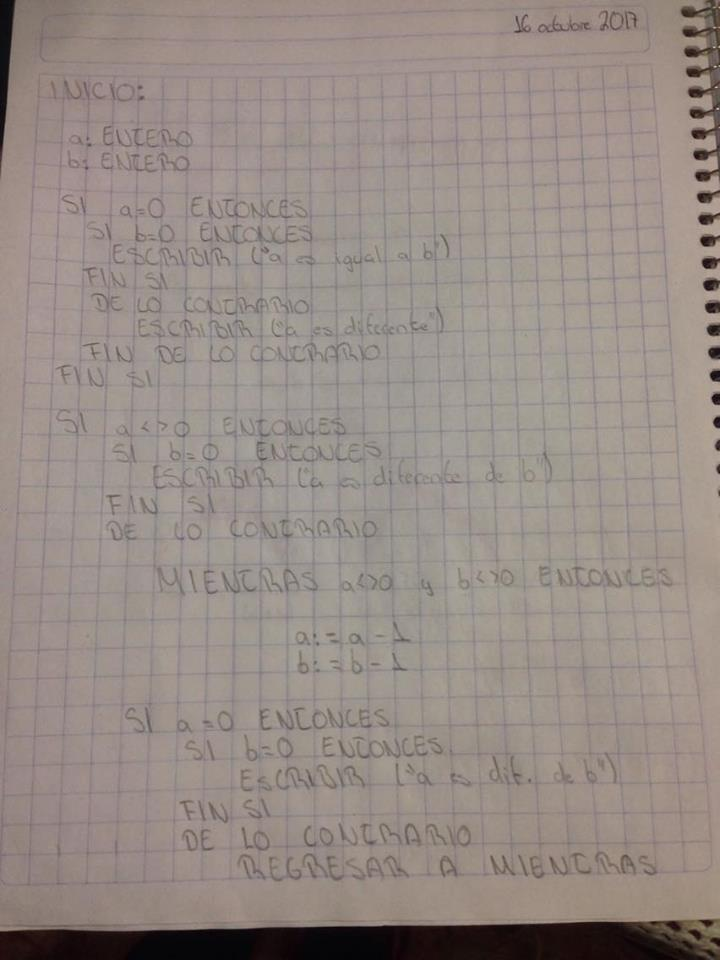 16 octubre 2017
INICIO:
a: ENTERO
b: ENTERO
SI a=0 ENTONCES
SI b=0 ENTONCES
ESCRIBIR ("a es igual a b")
FIN SI
DE LO CONTRARIO
ESCRIBIR ("a es diferente")
FIN DE LO CONTRARIO
FIN SI
SI a<>0 ENTONCES
SI b=0 ENTONCES
ESCRIBIR ("a es diferente de b")
FIN SI
DE LO CONTRARIO
MIENTRAS a<>0 y b<>0 ENTONCES
a:=a-1
b:=b-1
SI a=0 ENTONCES
SI b=0 ENTONCES
ESCRIBIR ("a es dif. de b")
FIN SI
DE LO CONTRARIO
REGRESAR A MIENTRAS